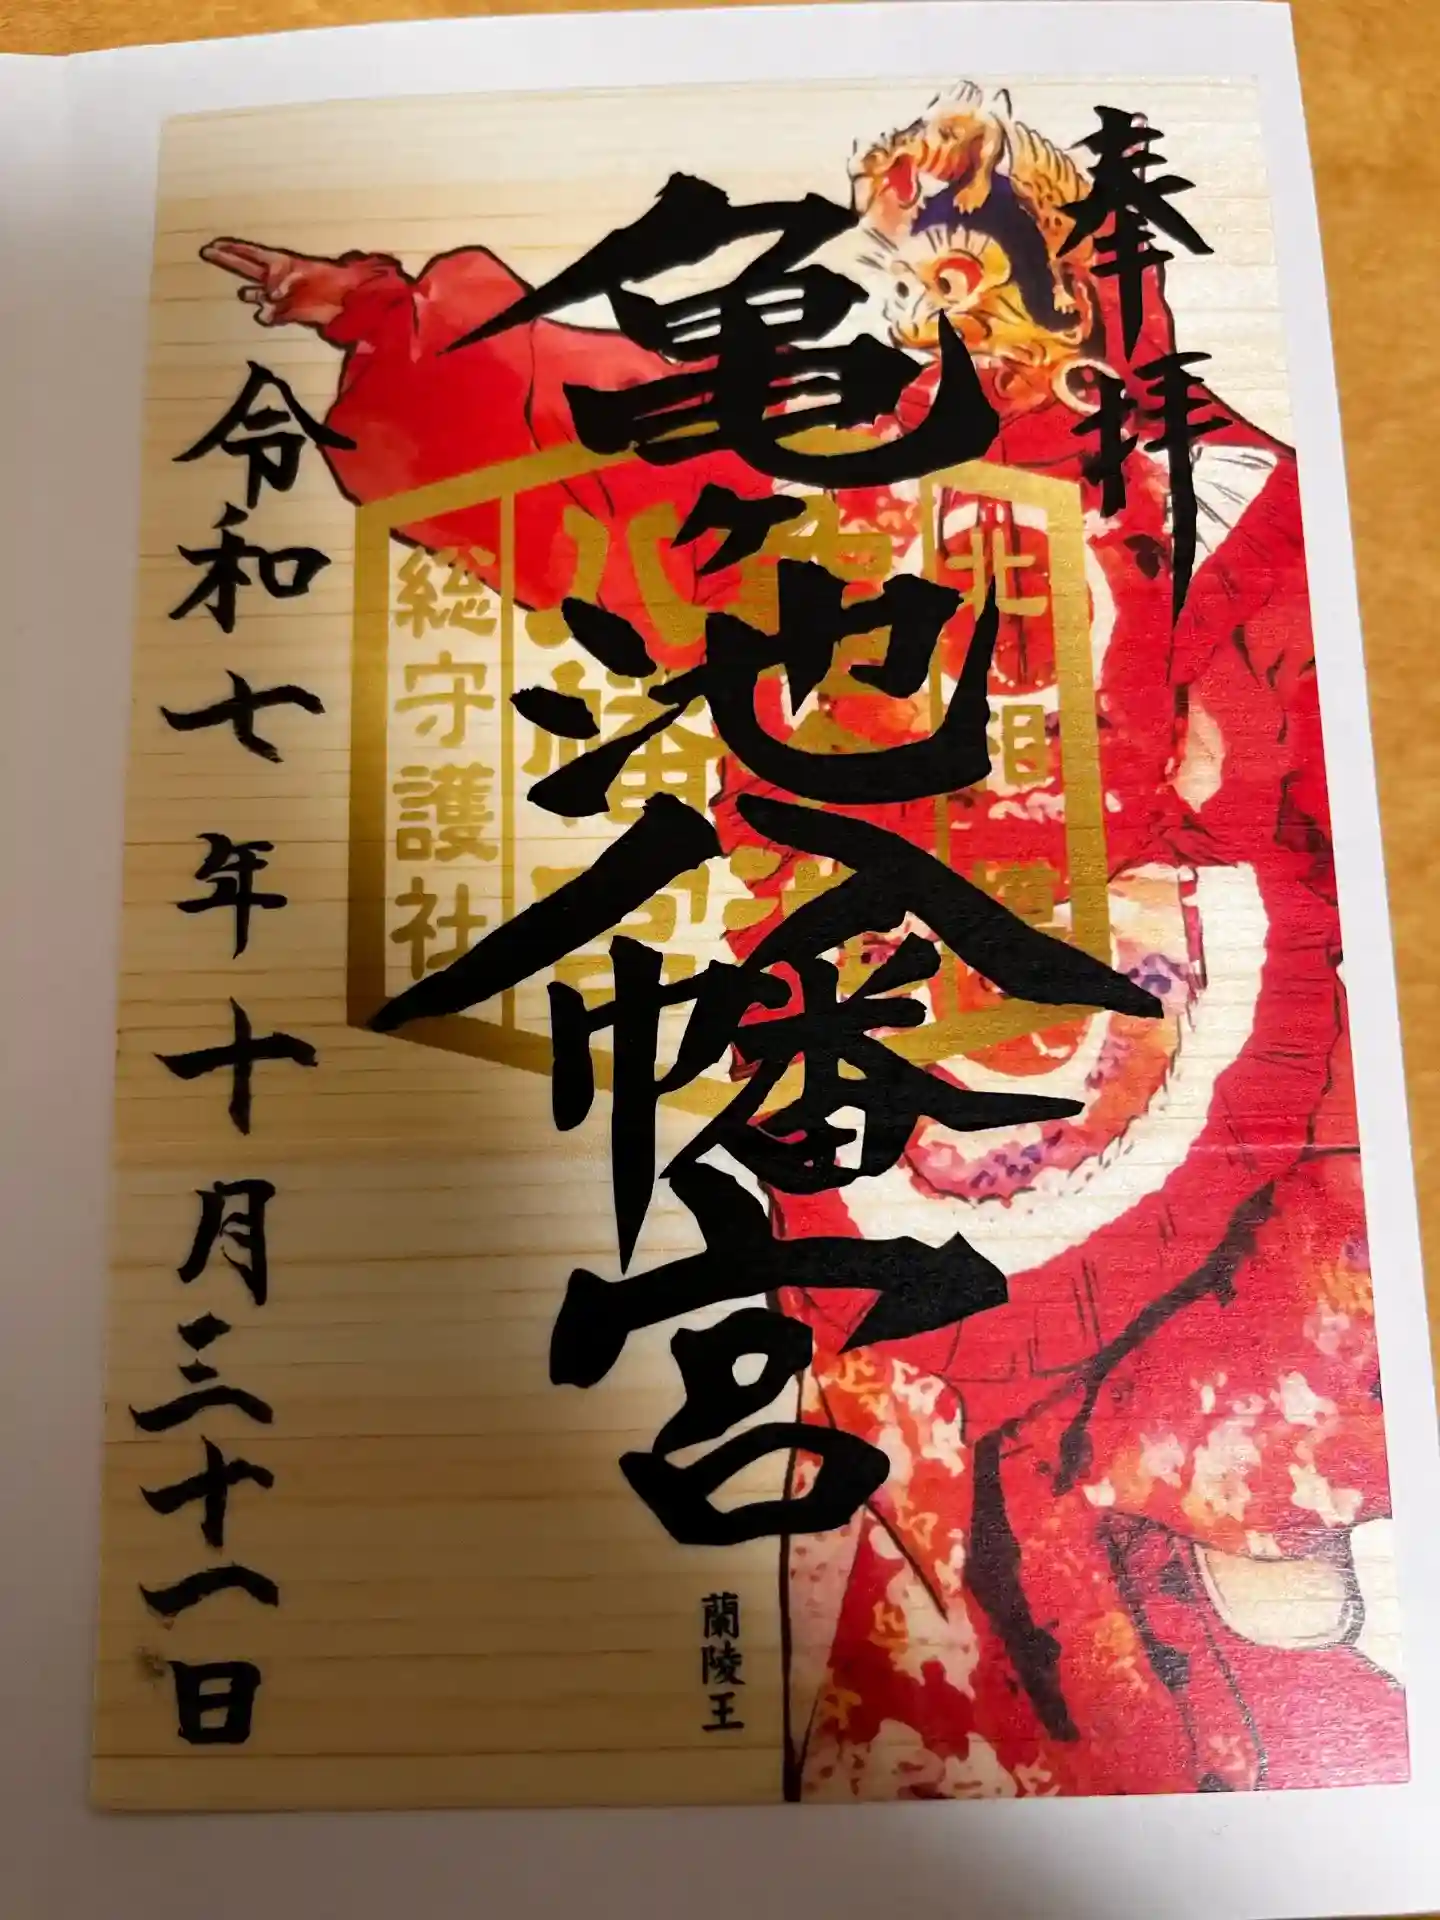 奉拝
亀ヶ池八幡宮
北相模
総守護社
蘭陵王
令和七年十月三十一日